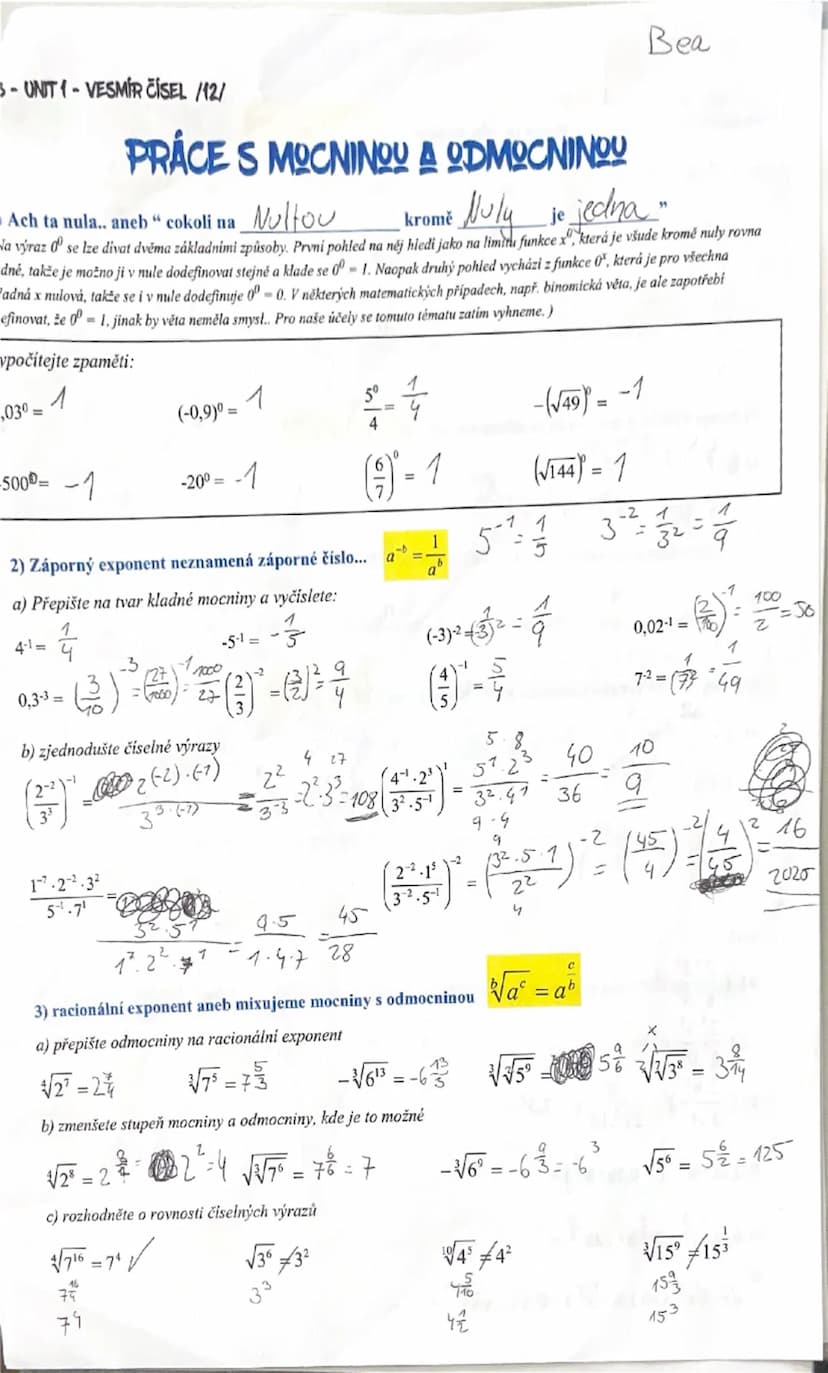 Bea
- UNIT 1 - VESMÍR ČÍSEL /12/
PRÁCE S MOCNINOU A ODMOCNINOU
Ach ta nula.. aneb “ cokoli na Nultou kromě Nuly je jedna ”
Na výraz 0⁰ se lze dívat dvěma základními způsoby. První pohled na něj hledí jako na limitu funkce x⁰, která je všude kromě nuly rovna
dné, takže je možno ji v nule dodefinovat stejně a klade se 0⁰ = 1. Naopak druhý pohled vychází z funkce 0ˣ, která je pro všechna
ladná x nulová, takže se i v nule dodefinuje 0⁰ = 0. V některých matematických případech, např. binomická věta, je ale zapotřebí
efinovat, že 0⁰ = 1, jinak by věta neměla smysl.. Pro naše účely se tomuto tématu zatím vyhneme. )
ypočítejte zpaměti:
,03⁰ = 1 (-0,9)⁰ = 1 5⁰/4 = 1/4 -(√49)⁰ = -1
-500⁰ = -1 -20⁰ = -1 (6/7)⁰ = 1 (√144)⁰ = 1
2) Záporný exponent neznamená záporné číslo... a⁻ᵇ = 1/aᵇ 5⁻¹ = 1/5 3⁻² = 1/3² = 1/9
a) Přepište na tvar kladné mocniny a vyčíslete:
4⁻¹ = 1/4 -5⁻¹ = -1/5 (-3)⁻² = (1/3)² = 1/9 0,02⁻¹ = (2/100)⁻¹ = 100/2 = 50
0,3⁻³ = (3/10)⁻³ = (27/1000)⁻¹ = 1000/27 (2/3)⁻² = (3/2)² = 9/4 (4/5)⁻¹ = 5/4 7⁻² = (1/7)² = 1/49
b) zjednodušte číselné výrazy
(2⁻²/3³)⁻¹ = 2^(-2)·(-1)/3^3·(-1) = 2²/3⁻³ = 2²·3³ = 108 (4⁻¹·2³/3²·5⁻¹)¹ = 5¹·2³/3²·4¹ = 40/36 = 10/9
4 27
5·8
9·4
1⁻⁷·2⁻²·3²/5⁻¹·7¹ = 3²·5¹/1⁷·2²·7¹ = 9·5/1·4·7 = 45/28 (2⁻²·1⁵/3⁻²·5⁻¹)⁻² = (3²·5·1/2²)⁻² = (45/4)⁻² = (4/45)² = 16/2025
9
4
3) racionální exponent aneb mixujeme mocniny s odmocninou ᵇ√aᶜ = a^(c/b)
a) přepište odmocniny na racionální exponent
⁴√2⁷ = 2^(7/4) ³√7⁵ = 7^(5/3) -³√6¹³ = -6^(13/3) ³√³√5⁹ = 5^(9/6) ⁷√²√3⁸ = 3^(8/14)
x
b) zmenšete stupeň mocniny a odmocniny, kde je to možné
⁴√2⁸ = 2^(8/4) = 2² = 4 √³√7⁶ = 7^(6/6) = 7 -³√6⁹ = -6^(9/3) = -6³ √5⁶ = 5^(6/2) = 125
c) rozhodněte o rovnosti číselných výrazů
⁴√7¹⁶ = 7⁴ ✓ √3⁶ ≠ 3² ¹⁰√4⁵ ≠ 4² ³√15⁹ ≠ 15^(1/3)
7^(16/4) 3³ 4^(5/10) 15^(9/3)
7⁴ 4^(1/2) 15³